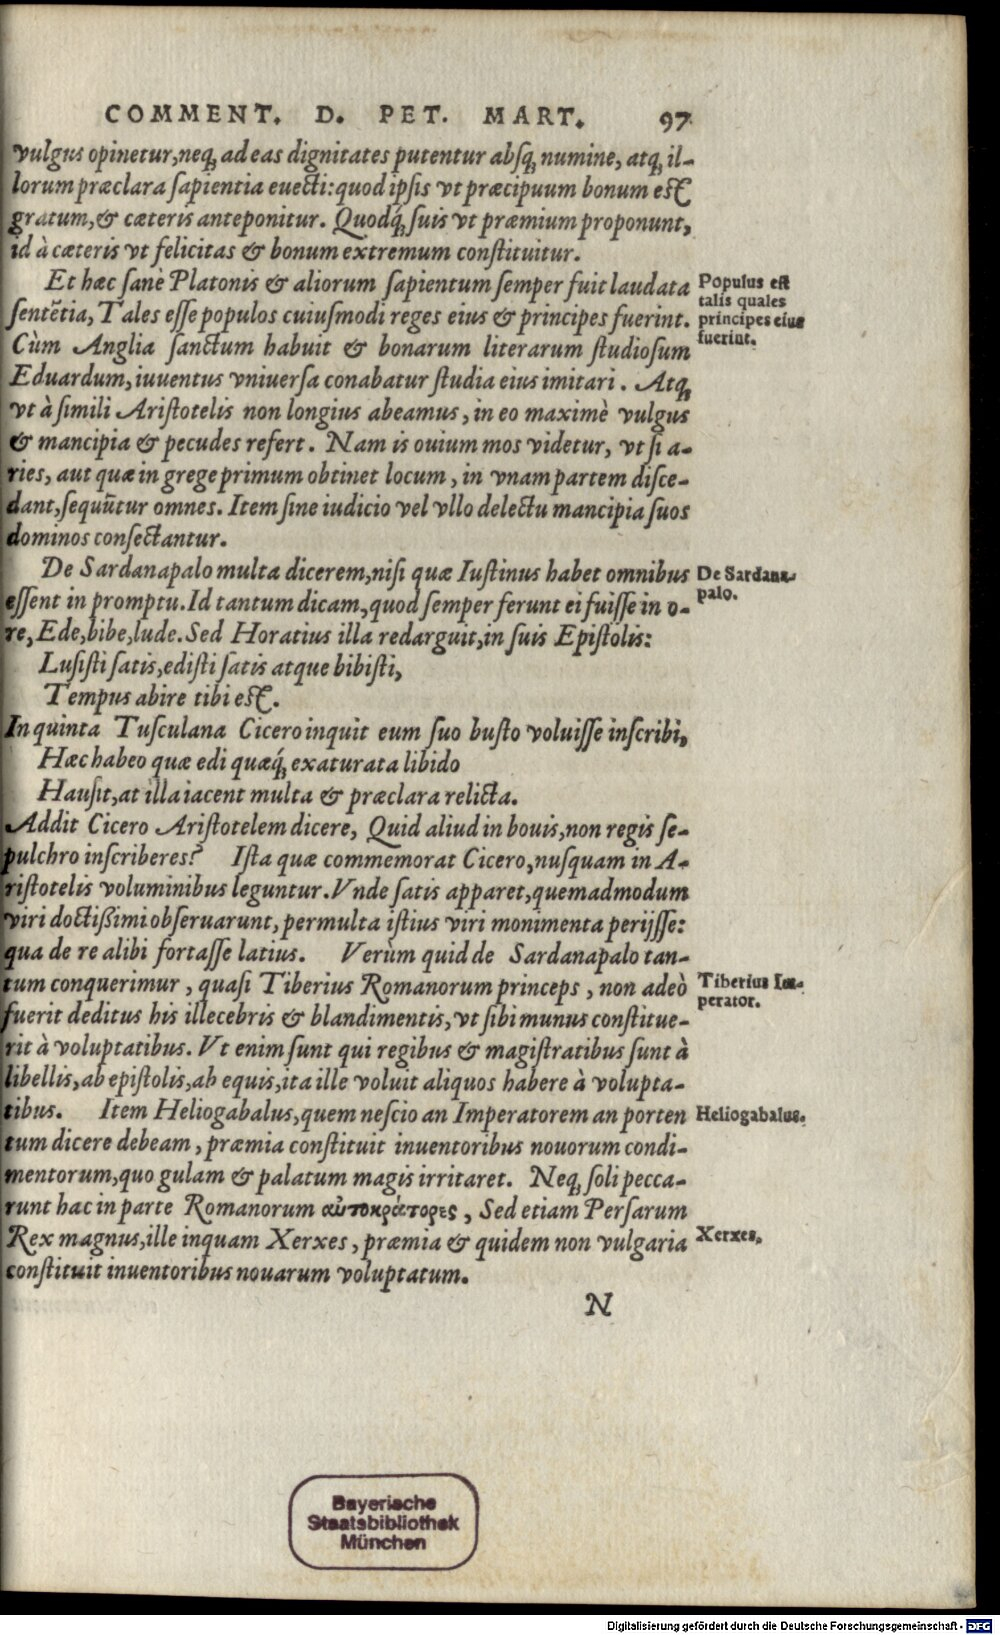 COMMENT. D. PET. MART. 97
vulgus opinetur, neq; ad eas dignitates putentur absq; numine, atq; il-
lorum præclara sapientia euecti: quod ipsis vt præcipuum bonum est
gratum, & cæteris anteponitur. Quodq́; suis vt præmium proponunt,
id à cæteris vt felicitas & bonum extremum constituitur.
Et hæc sanè Platonis & aliorum sapientum semper fuit laudata
sentẽtia, Tales esse populos cuiusmodi reges eius & principes fuerint.
Populus est
talis quales
principes eius
fuerint.
Cùm Anglia sanctum habuit & bonarum literarum studiosum
Eduardum, iuuentus vniuersa conabatur studia eius imitari. Atq;
vt à simili Aristotelis non longius abeamus, in eo maximè vulgus
& mancipia & pecudes refert. Nam is ouium mos videtur, vt si a-
ries, aut quæ in grege primum obtinet locum, in vnam partem disce-
dant, sequũtur omnes. Item sine iudicio vel vllo delectu mancipia suos
dominos consectantur.
De Sardanapalo multa dicerem, nisi quæ Iustinus habet omnibus
De Sardana-
palo.
essent in promptu. Id tantum dicam, quod semper ferunt ei fuisse in o-
re, Ede, bibe, lude. Sed Horatius illa redarguit, in suis Epistolis:
Lusisti satis, edisti satis atque bibisti,
Tempus abire tibi est.
In quinta Tusculana Cicero inquit eum suo busto voluisse inscribi,
Hæc habeo quæ edi quæq́; exaturata libido
Hausit, at illa iacent multa & præclara relicta.
Addit Cicero Aristotelem dicere, Quid aliud in bouis, non regis se-
pulchro inscriberes? Ista quæ commemorat Cicero, nusquam in A-
ristotelis voluminibus leguntur. Vnde satis apparet, quemadmodum
viri doctißimi obseruarunt, permulta istius viri monimenta perijsse:
qua de re alibi fortasse latius. Verùm quid de Sardanapalo tan-
tum conquerimur, quasi Tiberius Romanorum princeps, non adeò
Tiberius Im-
perator.
fuerit deditus his illecebris & blandimentis, vt sibi munus constitue-
rit à voluptatibus. Vt enim sunt qui regibus & magistratibus sunt à
libellis, ab epistolis, ab equis, ita ille voluit aliquos habere à volupta-
tibus. Item Heliogabalus, quem nescio an Imperatorem an porten
Heliogabalus.
tum dicere debeam, præmia constituit inuentoribus nouorum condi-
mentorum, quo gulam & palatum magis irritaret. Neq; soli pecca-
runt hac in parte Romanorum αὐτοκράτορες, Sed etiam Persarum
Rex magnus, ille inquam Xerxes, præmia & quidem non vulgaria
Xerxes.
constituit inuentoribus nouarum voluptatum.
N
Bayerische
Staatsbibliothek
München
Digitalisierung gefördert durch die Deutsche Forschungsgemeinschaft - DFG